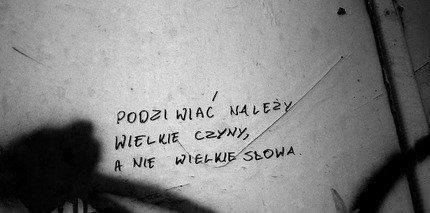 PODZIWIAĆ NALEŻY
WIELKIE CZYNY,
A NIE WIELKIE SŁOWA.